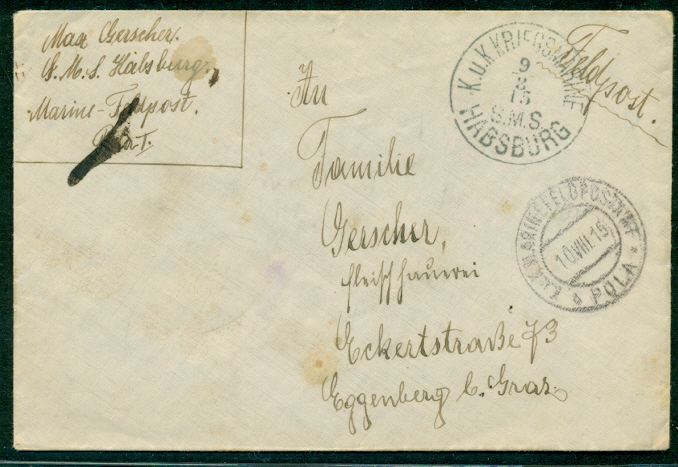 Max Gerscher.
S. M. S. Habsburg.
Marine-Feldpost.
Pola I.
K.u.K. KRIEGSMARINE
9
8
15
S.M.S.
HABSBURG
Feldpost.
An
Familie
Gerscher,
Fleischhauerei
Eckertstraße 73
Eggenberg b. Graz.
K.u.K. MARINEFELDPOSTAMT
10.VIII.15
POLA